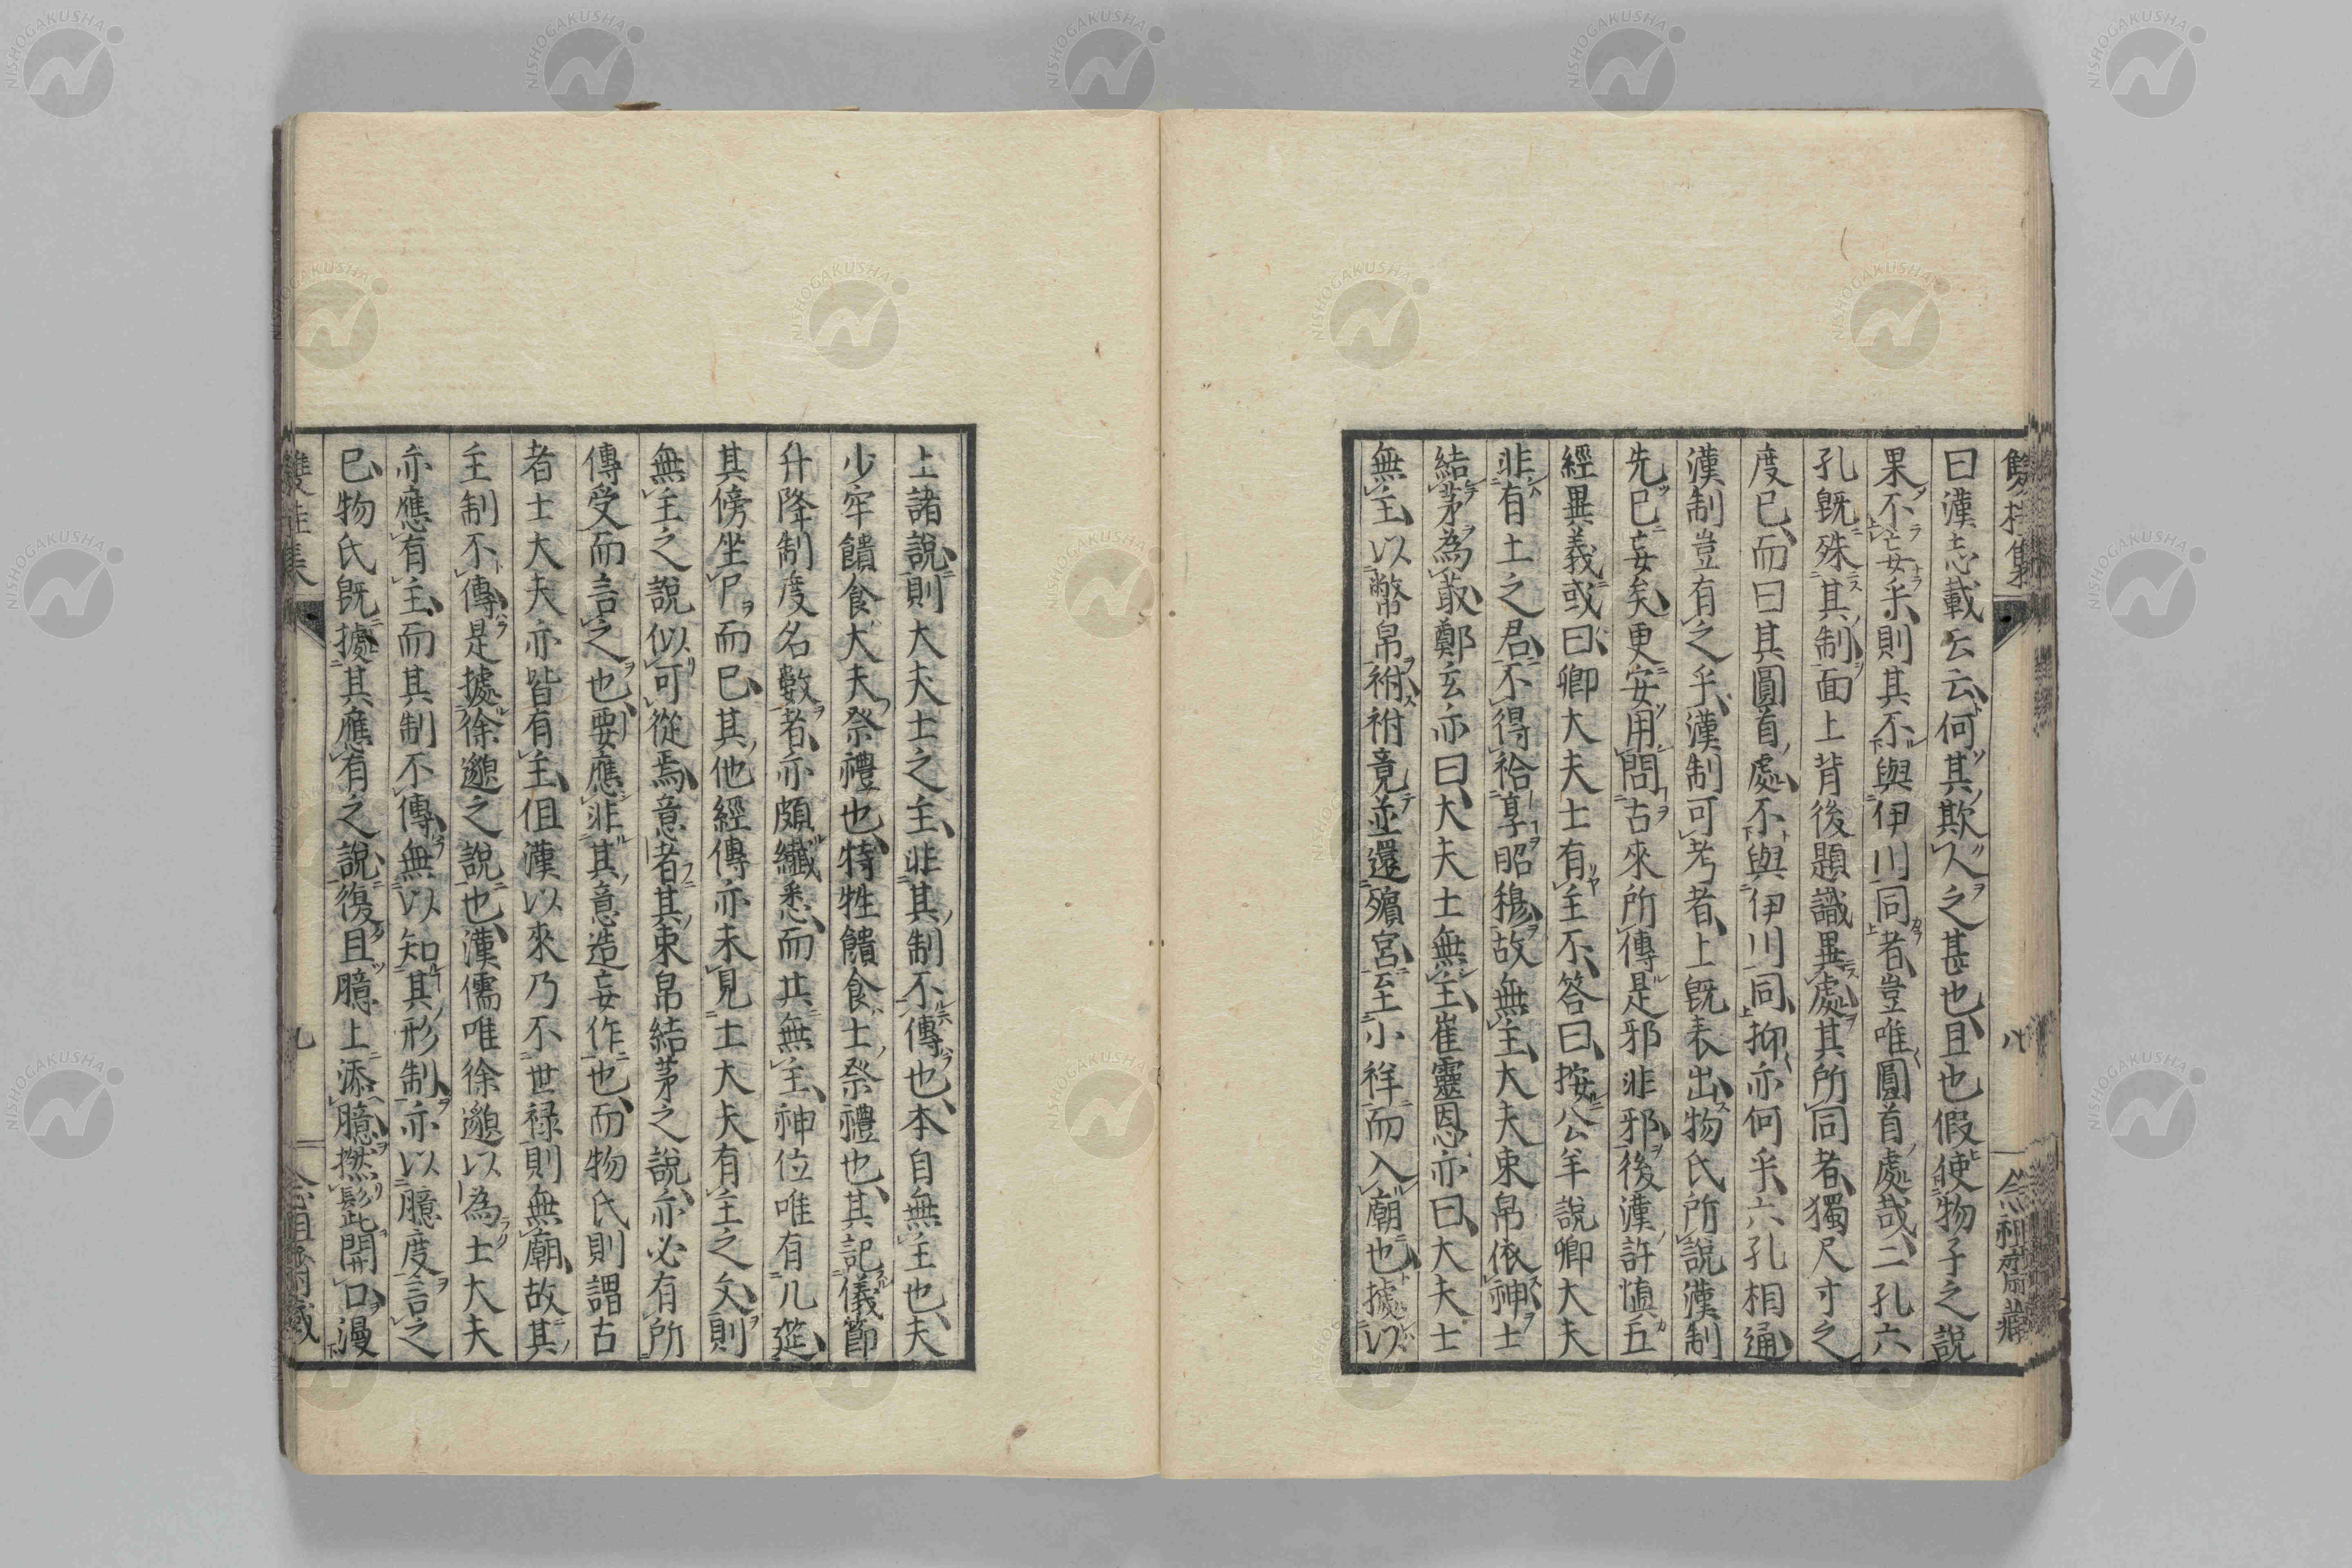 曰漢志載云云何其欺人之甚也且也假使物子之說
果不妄乎則其不與伊川同者豈唯圓首處哉二孔六
孔既殊其制面上背後題識異處其所同者獨尺寸之
度已而曰其圓首處不與伊川同抑亦何乎六孔相通
漢制豈有之乎漢制可考者上既表出物氏所說漢制
先已妄矣更安用問古來所傳是邪非邪後漢許慎五
經異義或曰卿大夫士有主不答曰按公羊說卿大夫
非有土之君不得祫享昭穆故無主大夫束帛依神士
結茅為菆鄭玄亦曰大夫士無主崔靈恩亦曰大夫士
無主以幣帛祔祔竟並還殯宮至小祥而入廟也據以
上諸說則大夫士之主非其制不傳也本自無主也夫
少牢饋食大夫祭禮也特牲饋食士祭禮也其記儀節
升降制度名數者亦頗纖悉而其無主神位唯有几筵
其傍坐尸而已其他經傳亦未見士大夫有主之文則
無主之說似可從焉意者其束帛結茅之說亦必有所
傳受而言之也要應非其意造妄作也而物氏則謂古
者士大夫亦皆有主但漢以來乃不世祿則無廟故其
主制不傳是據徐邈之說也漢儒唯徐邈以為士大夫
亦應有主而其制不傳無以知其形制亦以臆度言之
已物氏既據其應有之說復且臆上添臆撚髭開口漫
雙桂集
八
念祖齋藏
雙桂集
九
念祖齋藏
NISHOGAKUSHA